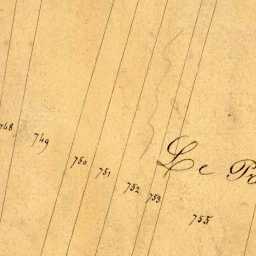 748
749
750
751
752
753
755
Le